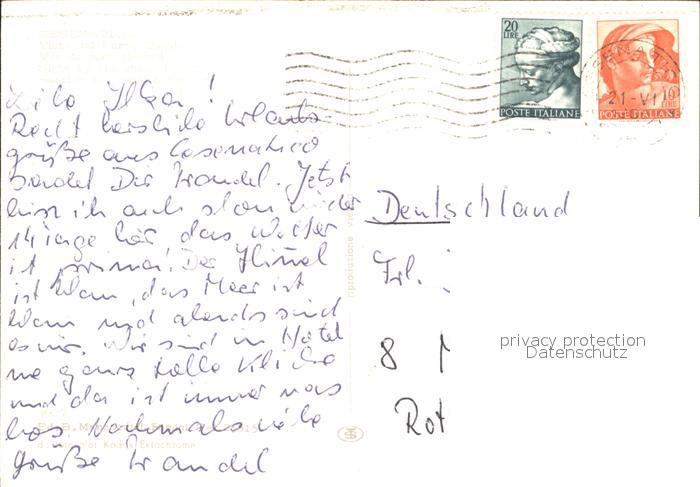 20
LIRE
POSTE ITALIANE
10
LIRE
POSTE ITALIANE
21-VI
Recht herzliche Urlaubs-
grüße aus Cesenatico
sendet Dir Traudel. Jetzt
bin ich auch schon wieder
14 Tage hier, das Wetter
ist prima! Der Himmel
ist blau, das Meer ist
blau und abends sind
es wir. Wir sind im Hotel
ne ganz tolle Clique
und da ist immer was
los. Nochmals viele
Grüße Traudel
Deutschland
Frl.
8
Rot
privacy protection
Datenschutz
riproduzione
Kodak Ektachrome